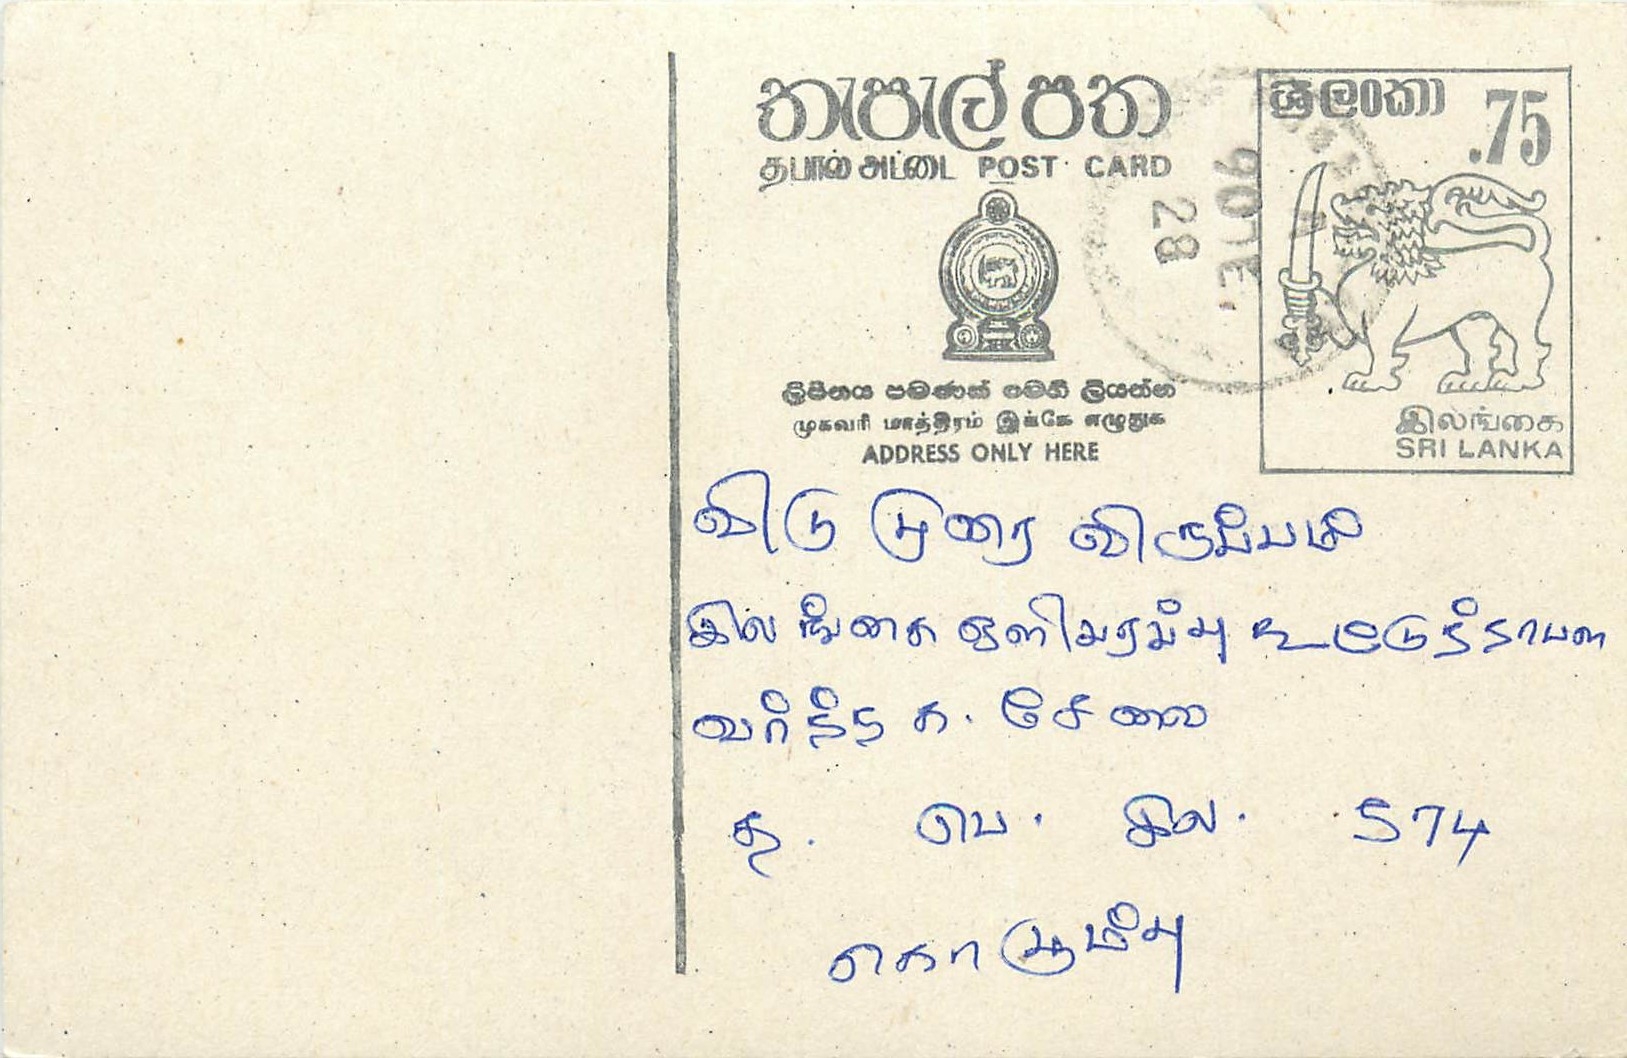 තැපැල් පත
தபால் அட்டை POST CARD
ශ්‍රී ලංකා .75
90 JE.
28
ලිපිනය පමණක් මෙහි ලියන්න
முகவரி மாத்திரம் இங்கே எழுதுக
ADDRESS ONLY HERE
இலங்கை
SRI LANKA
விடு முறை விருப்பம்
இலங்கை ஒளிபரப்பு கூட்டுத்தாபன
வர்த்தக. சேவை
த. பெ. இல. 574
கொழும்பு